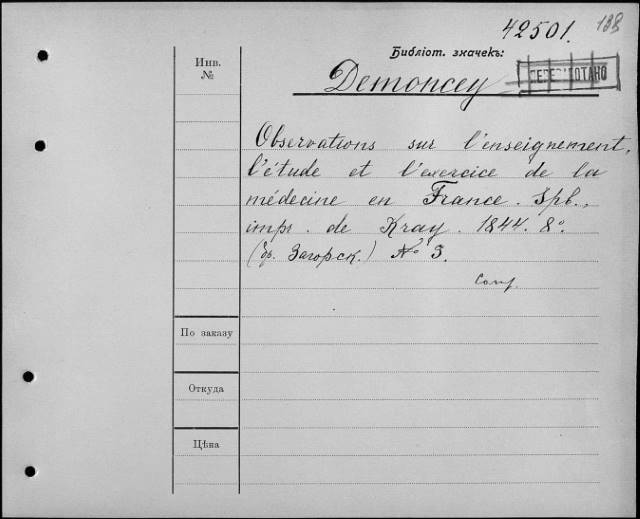 42501. 138
Библіот. значекъ:
Demoncey
Инв.
№
Observations sur l'enseignement,
l'étude et l'exercice de la
médecine en France. Spb.,
impr. de Kray. 1844. 8º.
(бр. Загорск.) № 3.
По заказу
Откуда
Цѣна